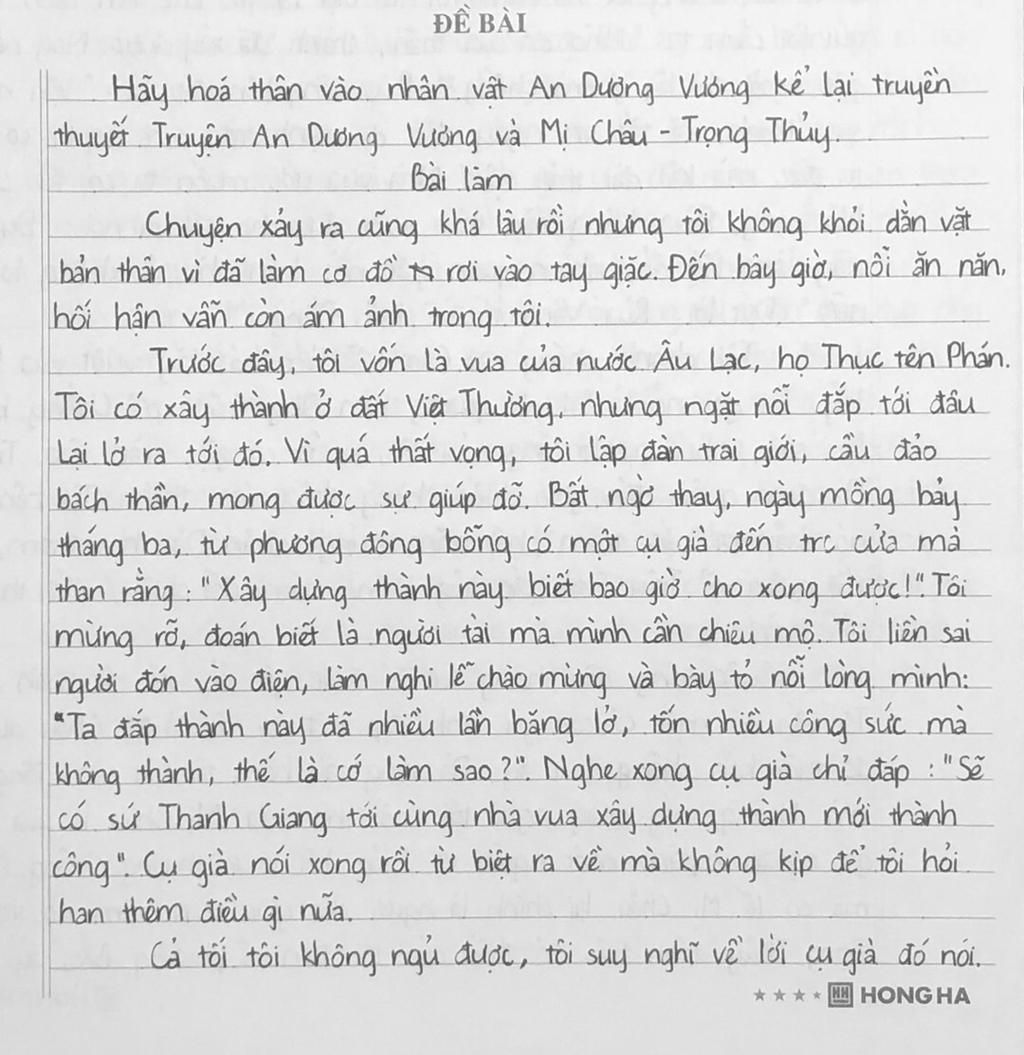 ĐỀ BÀI
Hãy hoá thân vào nhân vật An Dương Vương kể lại truyền
thuyết Truyện An Dương Vương và Mị Châu - Trọng Thủy.
Bài làm
Chuyện xảy ra cũng khá lâu rồi nhưng tôi không khỏi dằn vặt
bản thân vì đã làm cơ đồ rơi vào tay giặc. Đến bây giờ, nỗi ăn năn,
hối hận vẫn còn ám ảnh trong tôi.
Trước đây, tôi vốn là vua của nước Âu Lạc, họ Thục tên Phán.
Tôi có xây thành ở đất Việt Thường, nhưng ngặt nỗi đắp tới đâu
lại lở ra tới đó. Vì quá thất vọng, tôi lập đàn trai giới, cầu đảo
bách thần, mong được sự giúp đỡ. Bất ngờ thay, ngày mồng bảy
tháng ba, từ phương đông bỗng có một cụ già đến trc cửa mà
than rằng: "Xây dựng thành này biết bao giờ cho xong được!". Tôi
mừng rỡ, đoán biết là người tài mà mình cần chiêu mộ. Tôi liền sai
người đón vào điện, làm nghi lễ chào mừng và bày tỏ nỗi lòng mình:
"Ta đắp thành này đã nhiều lần băng lở, tốn nhiều công sức mà
không thành, thế là cớ làm sao?". Nghe xong cụ già chỉ đáp: "Sẽ
có sứ Thanh Giang tới cùng nhà vua xây dựng thành mới thành
công". Cụ già nói xong rồi từ biệt ra về mà không kịp để tôi hỏi
han thêm điều gì nữa.
Cả tối tôi không ngủ được, tôi suy nghĩ về lời cụ già đó nói.
HONG HA